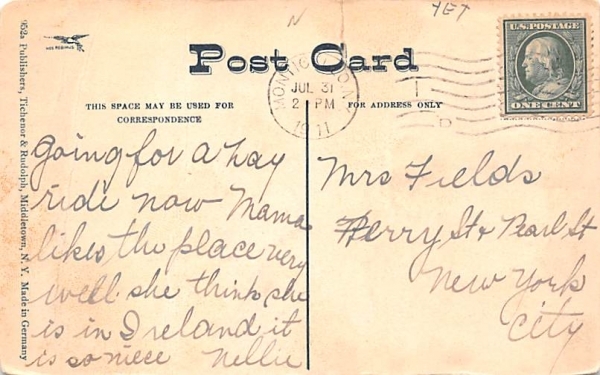 YET
N
U.S. POSTAGE
ONE CENT
Post Card
JUL 31
2 PM
1911
THIS SPACE MAY BE USED FOR
CORRESPONDENCE
FOR ADDRESS ONLY
going for a hay
ride now Mama
likes the place very
well she think she
is in Ireland it
is so niece Nellie
Mrs Fields
Perry St & Pearl St
New York
City
952a Publishers, Tichenor & Rudolph, Middletown, N. Y. Made in Germany